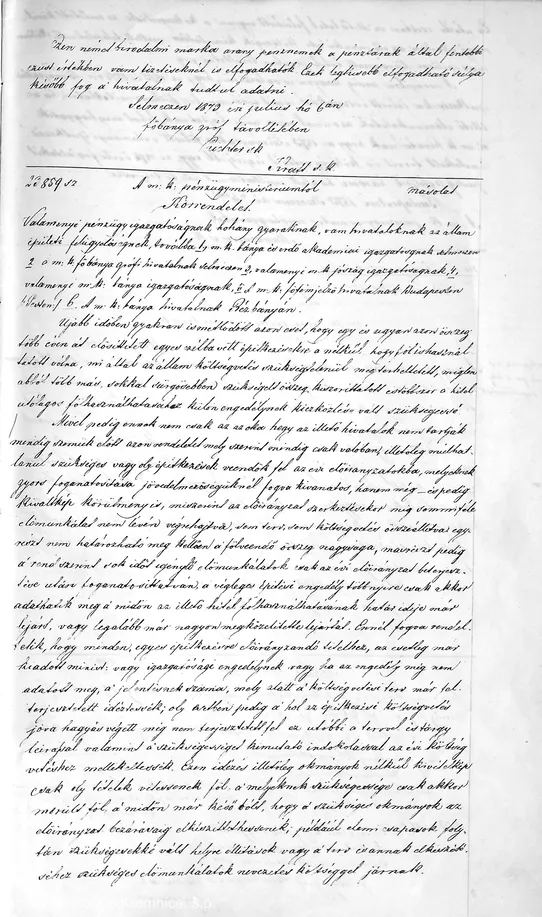 Ezen német birodalmi marka arany pénznemek a pénztárak által fentebbi
ezüst értékben vám fizetéseknél is elfogadhatók Ezek legkisebb elfogadható súlya
később fog a hivatalnak tudtul adatni.
Selmeczen 1873 évi julius hó 6án
főbánya gróf távollétében
Pechter sk
Kradt s. k
23859 sz A m: k: pénzügyministeriumtól másolat.
Körrendelet.
Valamenyi pénzügy igazgatóságnak dohány gyáraknak, vám hivataloknak az állam
épületi felügyelőségnek, továbbá 1, m. k. bánya és erdő akademiai igazgatóságnak Selmeczen
2 a m: k. főbánya grófi hivatalnak Selmeczen 3, valamenyi m. k jószág igazgatóságnak, 4,
valamenyi m: k: bánya igazgatóságnak, 5 A m. k. főfémjelző hivatalnak Budapesten
/:Pesten:/ 6. A m. k. bánya hivatalnak Rézbányán.
Ujabb időben gyakran ismétlődött azon eset, hogy egy és ugyan azon összeg
több éven át előirányzott egyes célba vett építkezésekre a nélkül, hogy föl is használ-
tatott volna, mi által az állam költségvetés szükségtelenül megterheltetett, míglen
abból több más, sokkal sürgősebben szükségelt összeg kiszoríttatott és többször a hitel
utólagos fölhasználhatására külön engedélynek kieszközlése vált szükségessé
Mivel pedig ennek nem csak az az oka hogy az illető hivatalok nem tartják
mindig szemeik előtt azon rendeletet mely szerint mindig csak valóban, illetőleg mulhat-
lanul szükséges vagy oly építkezések veendők föl az évi előirányzatokba, melyeknek
gyors foganatosítása jövedelmezőségüknél fogva kívánatos, hanem még – és pedig
kiváltkép körülmény is, miszerint az előirányzat szerkesztésekor még semmiféle
előmunkálat nem lévén végrehajtva, sem terv, sem költségvetés összeállítva egy-
részt nem határozható meg kellően a fölveendő összeg nagysága, másrészt pedig
a rendszerint sok időt igénylő előmunkálatok csak az évi előirányzat beterjesz-
tése után foganatosíttatván, a végleges építési engedély többnyire csak akkor
adathatik meg a midőn az illető hitel fölhasználhatásának határ ideje már
lejárt, vagy legalább már nagyon megközelítette lejártát. Ennél fogva rendel-
tetik, hogy minden, egyes építkezésre előirányzandó tételhez, az esetleg már
kiadott minist: vagy igazgatósági engedélynek vagy ha az engedély még nem
adatott meg, a jelentésnek száma, mely alatt a költségvetési terv már fel-
terjesztetett idéztessék; oly esetben pedig a hol az építkezési költségvetés
jóvá hagyás végett még nem terjesztetett fel ez utóbbi a tervvel és tárgy-
leírással valamint a szükségességet kimutató indokolással az évi költség
vetéshez mellékeltessék. Ezen idézés illetőleg okmányok nélkül kivételkép
csak oly tételek vétessenek föl, a melyeknek szükségessége csak akkor
merült föl, a midőn már késő volt, hogy a szükséges okmányok az
előirányzat bezárásáig elkészíttethessenek, például elemi csapások foly-
tán szükségesekké vált helyre állítások vagy a terv és annak elkészít-
séhez szükséges előmunkálatok nevezetes költséggel járnak.